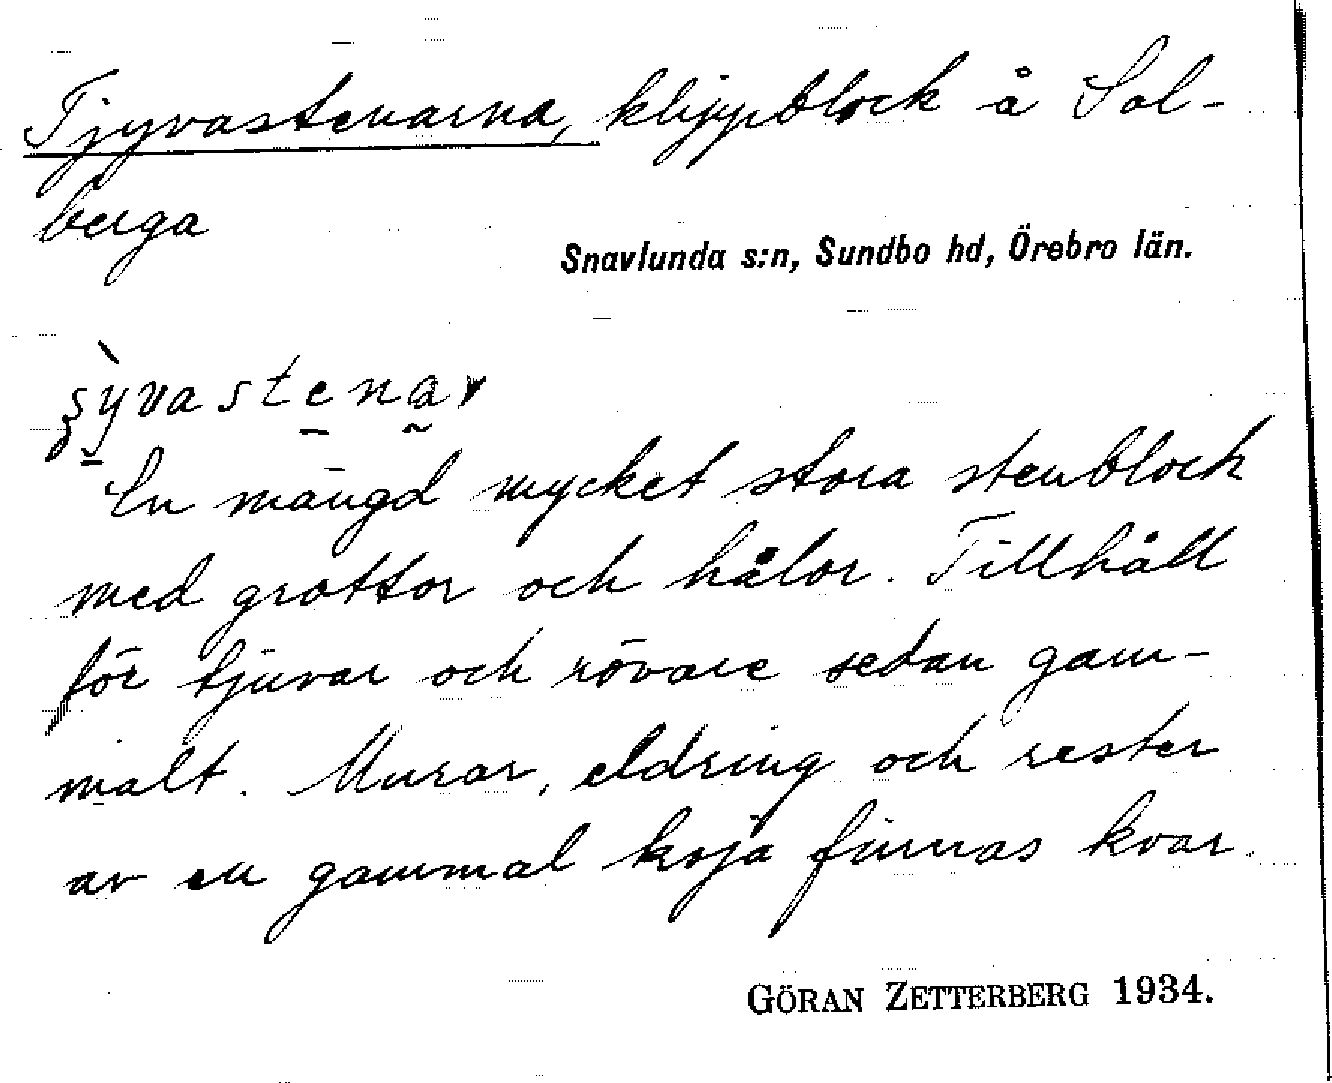 Tjyvastenarna, klippblock å Sol-
berga
Snavlunda s:n, Sundbo hd, Örebro län.
En mängd mycket stora stenblock
med grottor och hålor. Tillhåll
för tjuvar och rövare sedan gam-
malt. Murar, eldring och rester
av en gammal koja finnas kvar.
GÖRAN ZETTERBERG 1934.